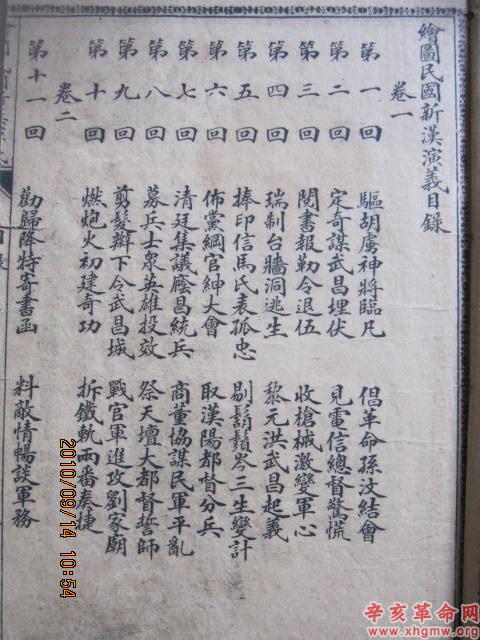 繪圖民國新漢演義目錄
卷一
第一回 驅胡虜神將臨凡 倡革命孫汶結會
第二回 定奇謀武昌埋伏 見電信總督驚慌
第三回 閱書報勒令退伍 收槍械激變軍心
第四回 瑞制台牆洞逃生 黎元洪武昌起義
第五回 捧印信馬氏表孤忠 剔鬍鬚岑三生變計
第六回 佈黨綱官紳大會 取漢陽都督分兵
第七回 清廷集議蔭昌統兵 商董協謀民軍平亂
第八回 募兵士眾英雄投效 祭天壇大都督誓師
第九回 剪髮辮下令武昌城 戰官軍進攻劉家廟
第十回 燃炮火初建奇功 拆鐵軌兩番奏捷
卷二
第十一回 勸歸降特寄書函 料敵情暢談軍務
2010/09/14 10:54
辛亥革命网
www.xhgmw.org